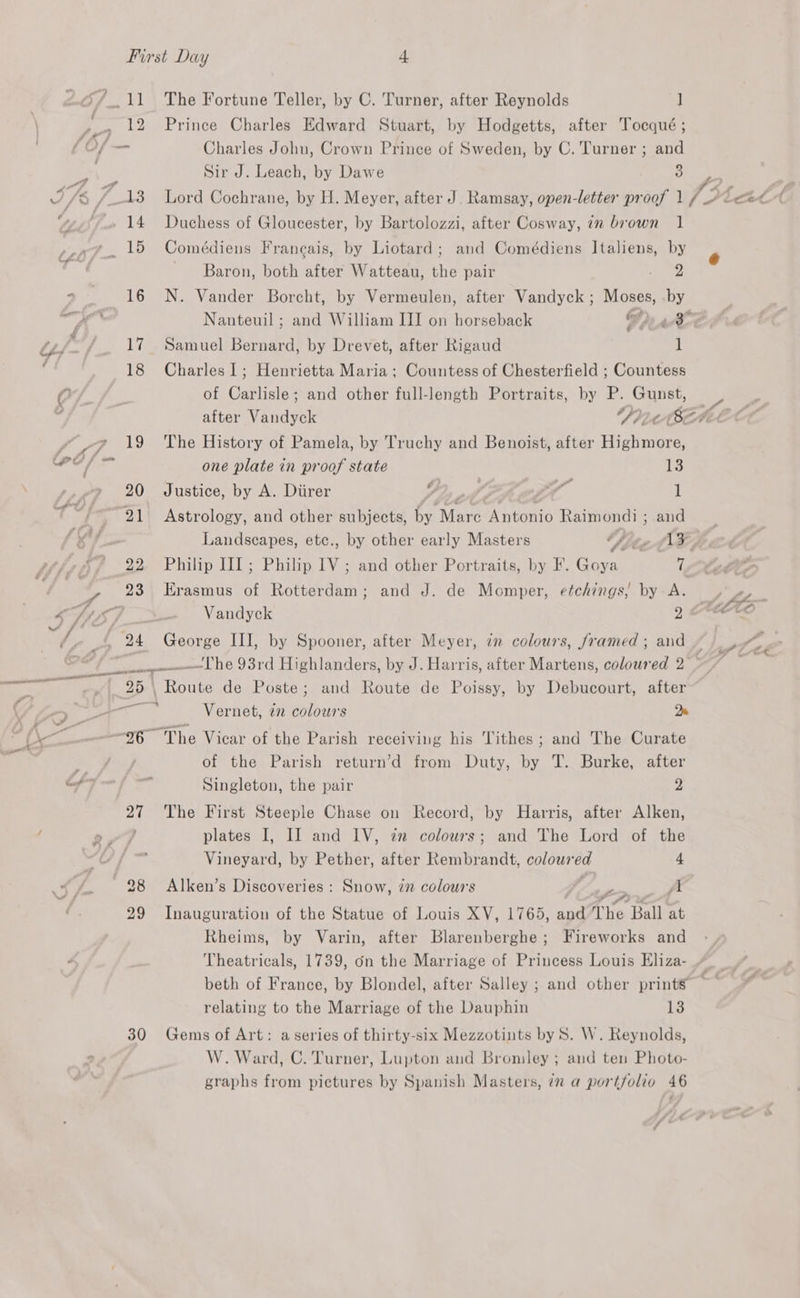 First Day 4
11 The Fortune Teller, by C. Turner, after Reynolds 1
12 Prince Charles Edward Stuart, by Hodgetts, after Tocqué;
Charles John, Crown Prince of Sweden, by C. Turner; and
Sir J. Leach, by Dawe 3
13 Lord Cochrane, by H. Meyer, after J. Ramsay, open-letter proof 1
14 Duchess of Gloucester, by Bartolozzi, after Cosway, in brown 1
15 Comédiens Français, by Liotard; and Comédiens Italiens, by
Baron, both after Watteau, the pair 2
16 N. Vander Borcht, by Vermeulen, after Vandyck; Moses, by
Nanteuil; and William III on horseback 3
17 Samuel Bernard, by Drevet, after Rigaud 1
18 Charles I; Henrietta Maria; Countess of Chesterfield; Countess
of Carlisle; and other full-length Portraits, by P. Gunst,
after Vandyck 8
19 The History of Pamela, by Truchy and Benoist, after Highmore,
one plate in proof state 13
20 Justice, by A. Dürer 1
21 Astrology, and other subjects, by Marc Antonio Raimondi; and
Landscapes, etc., by other early Masters 13
22 Philip III; Philip IV; and other Portraits, by F. Goya 7
23 Erasmus of Rotterdam; and J. de Momper, etchings, by A.
Vandyck 2
24 George III, by Spooner, after Meyer, in colours, framed; and
The 93rd Highlanders, by J. Harris, after Martens, coloured 2
25 Route de Poste; and Route de Poissy, by Debucourt, after
Vernet, in colours 2
26 The Vicar of the Parish receiving his Tithes; and The Curate
of the Parish return'd from Duty, by T. Burke, after
Singleton, the pair 2
27 The First Steeple Chase on Record, by Harris, after Alken,
plates I, II and IV, in colours; and The Lord of the
Vineyard, by Pether, after Rembrandt, coloured 4
28 Alken's Discoveries: Snow, in colours 1
29 Inauguration of the Statue of Louis XV, 1765, and The Ball at
Rheims, by Varin, after Blarenberghe; Fireworks and
Theatricals, 1739, on the Marriage of Princess Louis Eliza-
beth of France, by Blondel, after Salley; and other prints
relating to the Marriage of the Dauphin 13
30 Gems of Art: a series of thirty-six Mezzotints by S. W. Reynolds,
W. Ward, C. Turner, Lupton and Bromley; and ten Photo-
graphs from pictures by Spanish Masters, in a portfolio 46